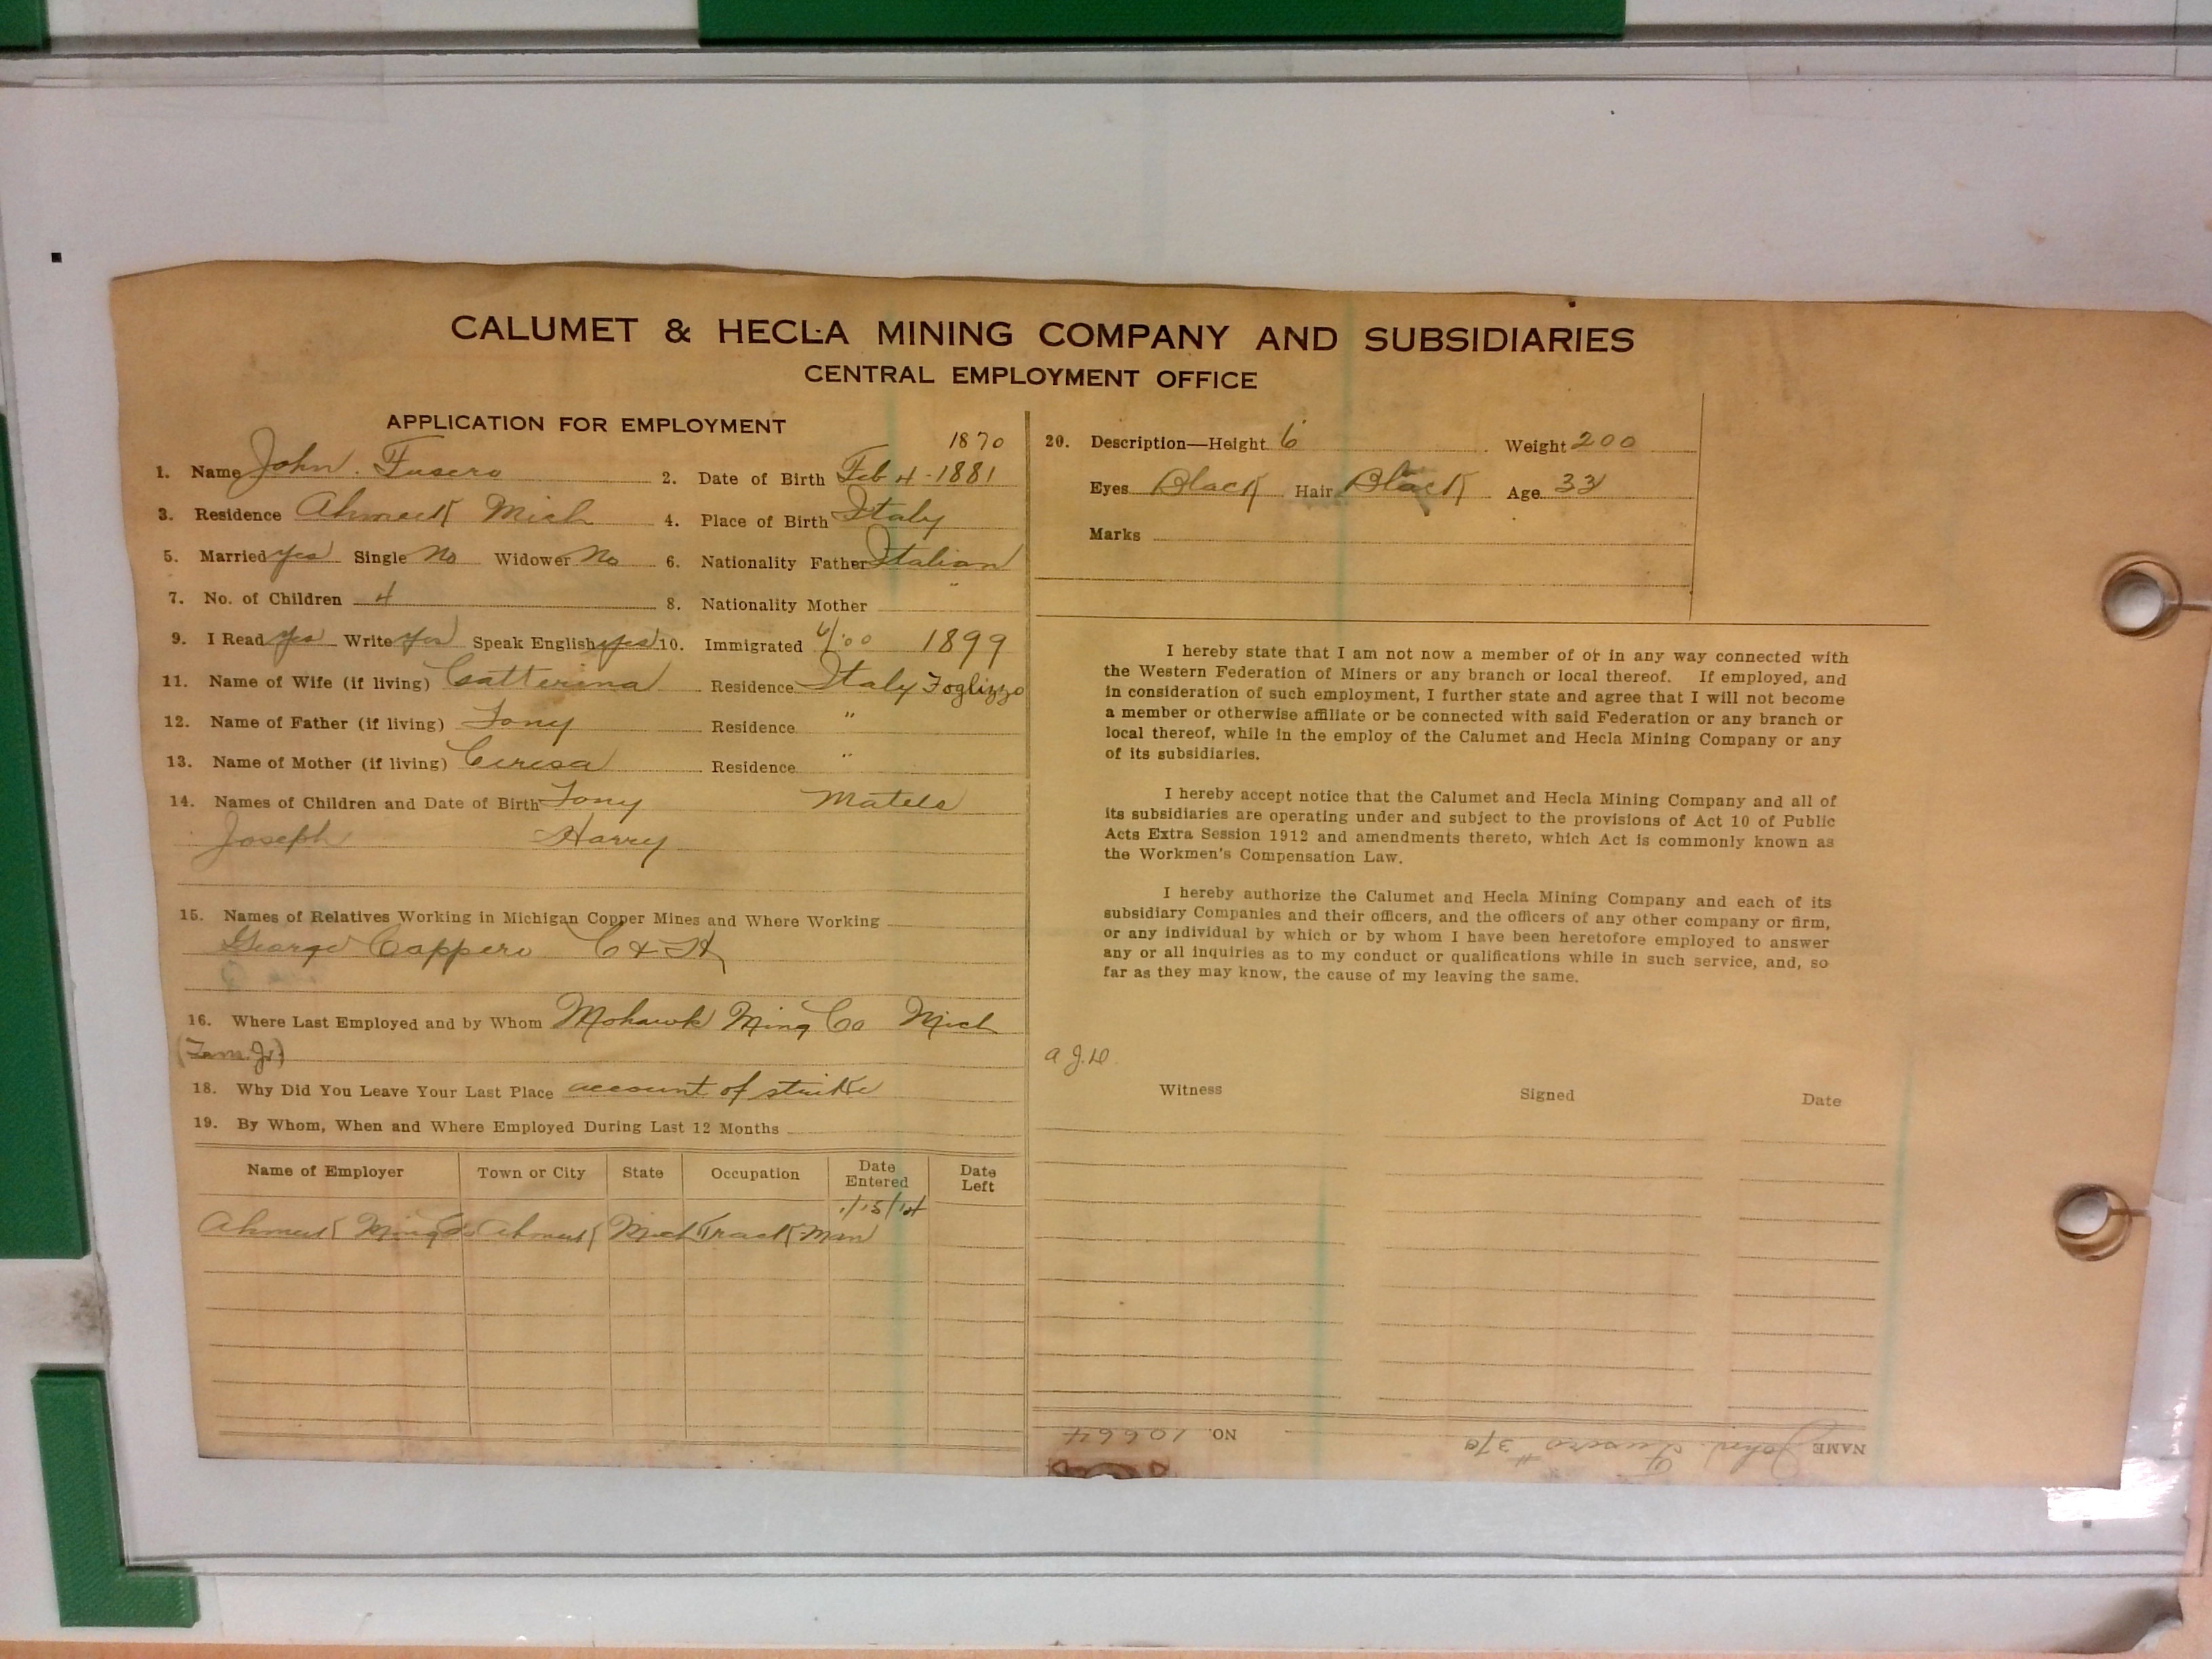 CALUMET & HECLA MINING COMPANY AND SUBSIDIARIES
CENTRAL EMPLOYMENT OFFICE
APPLICATION FOR EMPLOYMENT
1870
1. Name John. Fusero 2. Date of Birth Feb 4-1881
3. Residence Ahmeek Mich 4. Place of Birth Italy
5. Married yes Single No Widower No 6. Nationality Father Italian
7. No. of Children 4 8. Nationality Mother "
9. I Read yes Write yes Speak English yes 10. Immigrated 1899
11. Name of Wife (if living) Catterina Residence Italy Foglizzo
12. Name of Father (if living) Tony Residence "
13. Name of Mother (if living) Ceresa Residence "
14. Names of Children and Date of Birth Tony Matela
Joseph Harry
15. Names of Relatives Working in Michigan Copper Mines and Where Working
George Cappero C & H
16. Where Last Employed and by Whom Mohawk Ming Co Mich
18. Why Did You Leave Your Last Place account of strike
19. By Whom, When and Where Employed During Last 12 Months
Name of Employer Town or City State Occupation Date Entered Date Left
1/15/14
Ahmeek Ming Co Ahmeek Mich Track Man
20. Description—Height 6 Weight 200
Eyes Black Hair Black Age 33
Marks
I hereby state that I am not now a member of or in any way connected with
the Western Federation of Miners or any branch or local thereof. If employed, and
in consideration of such employment, I further state and agree that I will not become
a member or otherwise affiliate or be connected with said Federation or any branch or
local thereof, while in the employ of the Calumet and Hecla Mining Company or any
of its subsidiaries.
I hereby accept notice that the Calumet and Hecla Mining Company and all of
its subsidiaries are operating under and subject to the provisions of Act 10 of Public
Acts Extra Session 1912 and amendments thereto, which Act is commonly known as
the Workmen's Compensation Law.
I hereby authorize the Calumet and Hecla Mining Company and each of its
subsidiary Companies and their officers, and the officers of any other company or firm,
or any individual by which or by whom I have been heretofore employed to answer
any or all inquiries as to my conduct or qualifications while in such service, and, so
far as they may know, the cause of my leaving the same.
Witness Signed Date
NAME John. Fusero NO. 10664